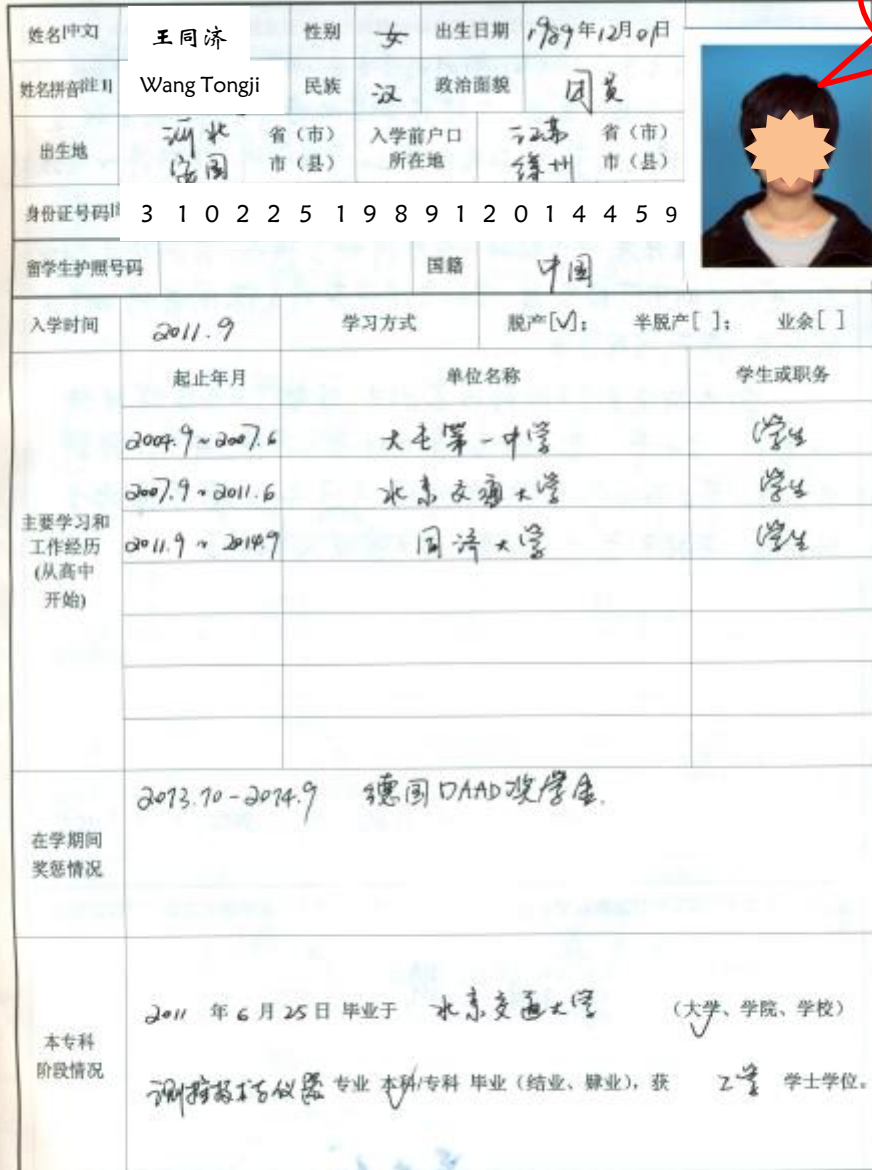 姓名[中文] 王同济 性别 女 出生日期 1989年12月01日
姓名拼音[注1] Wang Tongji 民族 汉 政治面貌 团员
出生地 河北 省（市） 安国 市（县） 入学前户口所在地 江苏 省（市） 徐州 市（县）
身份证号码[注 3 1 0 2 2 5 1 9 8 9 1 2 0 1 4 4 5 9
留学生护照号码 国籍 中国
入学时间 2011.9 学习方式 脱产[√]； 半脱产[ ]； 业余[ ]
主要学习和
工作经历
(从高中
开始)
起止年月 单位名称 学生或职务
2004.9~2007.6 大屯第一中学 学生
2007.9~2011.6 北京交通大学 学生
2011.9~2014.9 同济大学 学生
在学期间
奖惩情况
2013.10-2014.9 德国DAAD奖学金.
本专科
阶段情况
2011 年 6 月 25 日 毕业于 北京交通大学 （大学、学院、学校）
测控技术与仪器 专业 本科/专科 毕业（结业、肄业），获 工学 学士学位。